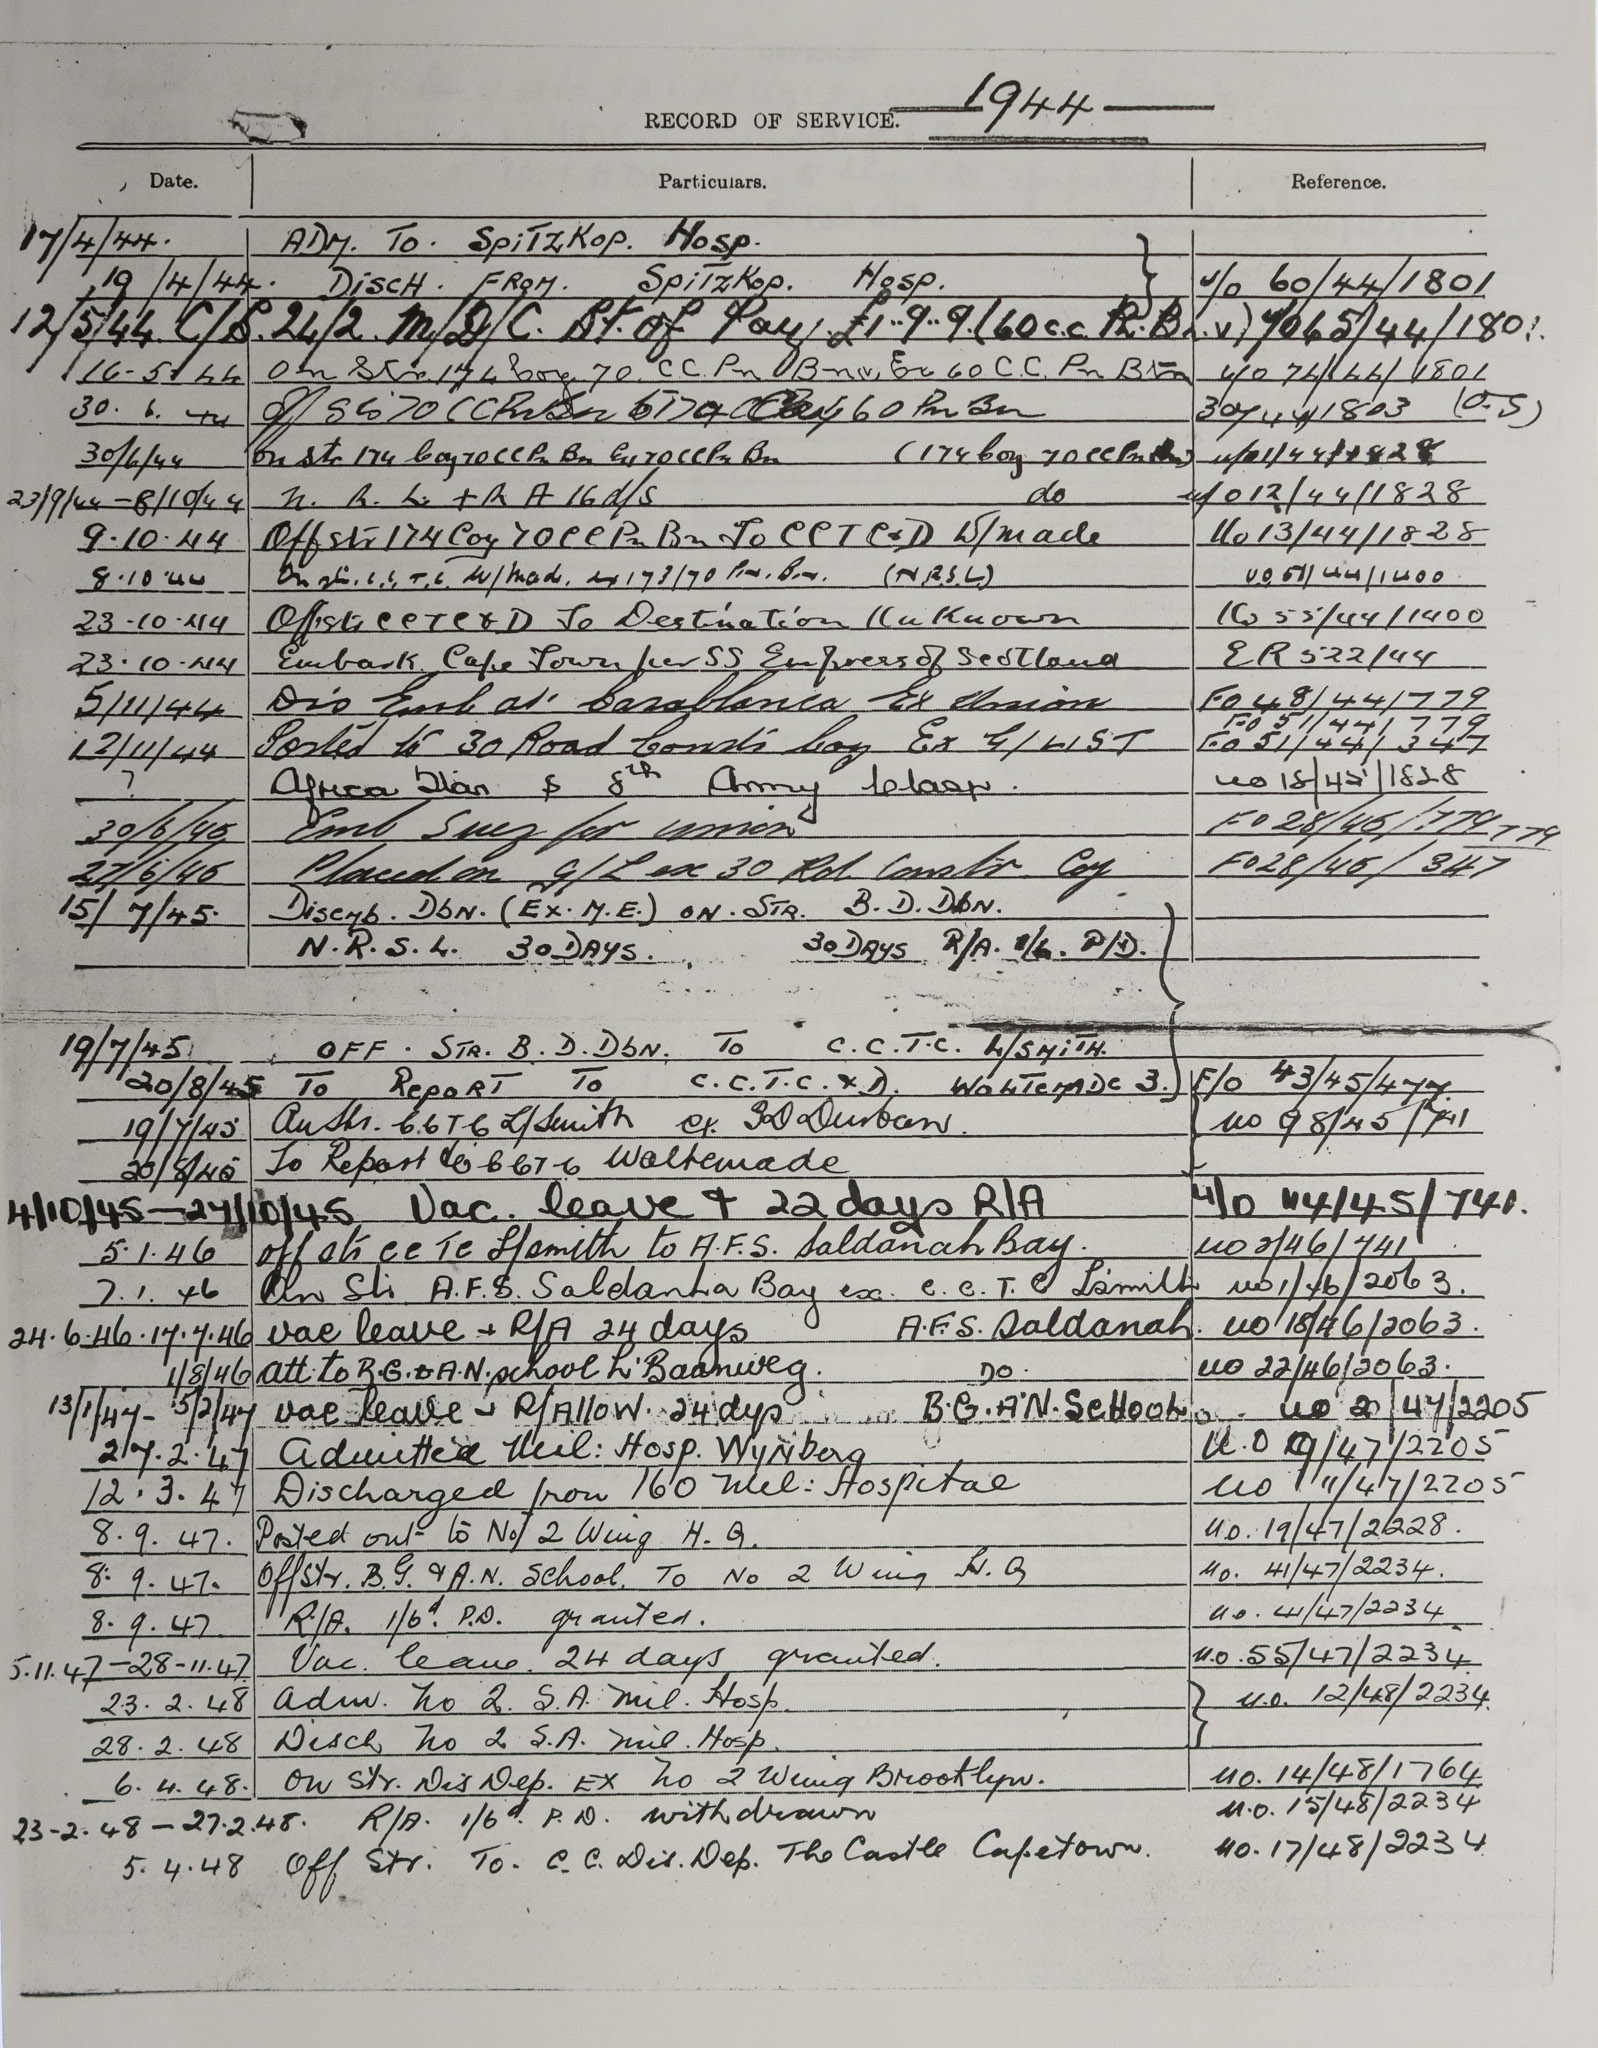 RECORD OF SERVICE. — 1944 —
Date. Particulars. Reference.
17/4/44. ADM. TO. SPITZKOP. HOSP.
19/4/44. DISCH. FROM. SPITZKOP. HOSP. U/O 60/44/1801
12/5/44. C/S. 24/2. M/D/C. St. of Pay, £1..9..9. (60 C.C. Pn. Bn.) 65/44/1801.
16-5-44 On Str. 174 Coy 70 C.C. Pn Bn Ex 60 C.C. Pn Btn U/O 74/44/1801
30.6.44 Off 60 Pn Bn 30/44/1803 (O.S)
30/6/44 On str 174 Coy 70 CC Pn Bn Ex 70 CC Pn Bn (174 Coy 70 CC Pn Bn)
23/9/44 - 8/10/44 N. R. L. + R A 16 d/s do U/O 12/44/1828
9.10.44 Off str 174 Coy 70 CC Pn Bn To CCTC & D W/made UO 13/44/1828
8.10.44 On str. C.C.T.C. W/mad. ex 173/70 Pn. Bn. (N.R.S.L) UO 51/44/1400
23.10.44 Off str CCTC & D To Destination Unknown UO 55/44/1400
23.10.44 Embark Cape Town per SS Empress of Scotland ER 522/44
5/11/44 Dis Emb at Casablanca Ex Union FO 48/44/779
FO 51/44/779
12/11/44 Posted to 30 Road Constr Coy Ex G/LIST FO 51/44/347
? Africa Star & 8th Army Clasp. UO 18/45/1828
30/6/45 Emb Suez for Union FO 28/45/779
779
27/6/45 Placed on G/L ex 30 Rd Constr Coy FO 28/45/347
15/7/45. Disemb. DbN. (Ex. M.E.) ON. STR. B.D. DbN.
N.R.S.L. 30 DAYS. 30 DAYS R/A. 1/6. P/D.
19/7/45 OFF. STR. B.D. DbN. To C.C.T.C. L/SMITH.
20/8/45 To REPORT To C.C.T.C. & D. WOLTEMADE 3. F/O 43/45/477
19/7/45 On Str. CCTC L/Smith ex. BD Durban. UO 98/45/741
20/8/45 To Report to CCTC Woltemade
4/10/45-27/10/45 Vac. leave + 22 days R/A U/O 114/45/741.
5.1.46 off str CCTC L/Smith to A.F.S. Saldanah Bay. UO 2/46/741
7.1.46 On Str A.F.S. Saldanha Bay ex. C.C.T.C L'Smith UO 1/46/2063.
24.6.46.17.7.46 vac leave + R/A 24 days A.F.S. Saldanah. UO 18/46/2063.
1/8/46 att to B.G. & A.N. school L'Baanweg. DO. UO 22/46/2063.
13/1/47-5/2/47 vac leave + R/ALLOW. 24 dys B.G. AN. SCHOOL. UO 2/47/2205
27.2.47 Admitted Mil: Hosp. Wynberg U.O 9/47/2205
12.3.47 Discharged from 160 Mil: Hospital UO 11/47/2205
8.9.47. Posted out to No/ 2 Wing H.Q. UO. 19/47/2228.
8.9.47. Off Str. B.G. & A.N. School. To No 2 Wing H.Q UO. 41/47/2234.
8.9.47 R/A. 1/6d. P.D. granted. UO. 41/47/2234
5.11.47-28-11.47 Vac. leave. 24 days granted. UO. 55/47/2234.
23.2.48 Adm. No 2. S.A. Mil. Hosp. UO. 12/48/2234.
28.2.48 Disch No 2 S.A. Mil. Hosp.
6.4.48. On Str. Dis Dep. Ex No 2 Wing Brooklyn. UO. 14/48/1764
23-2.48-27.2.48. R/A. 1/6d. P.D. withdrawn U.O. 15/48/2234
5.4.48 Off Str. To. C.C. Dis. Dep. The Castle Capetown. UO. 17/48/2234